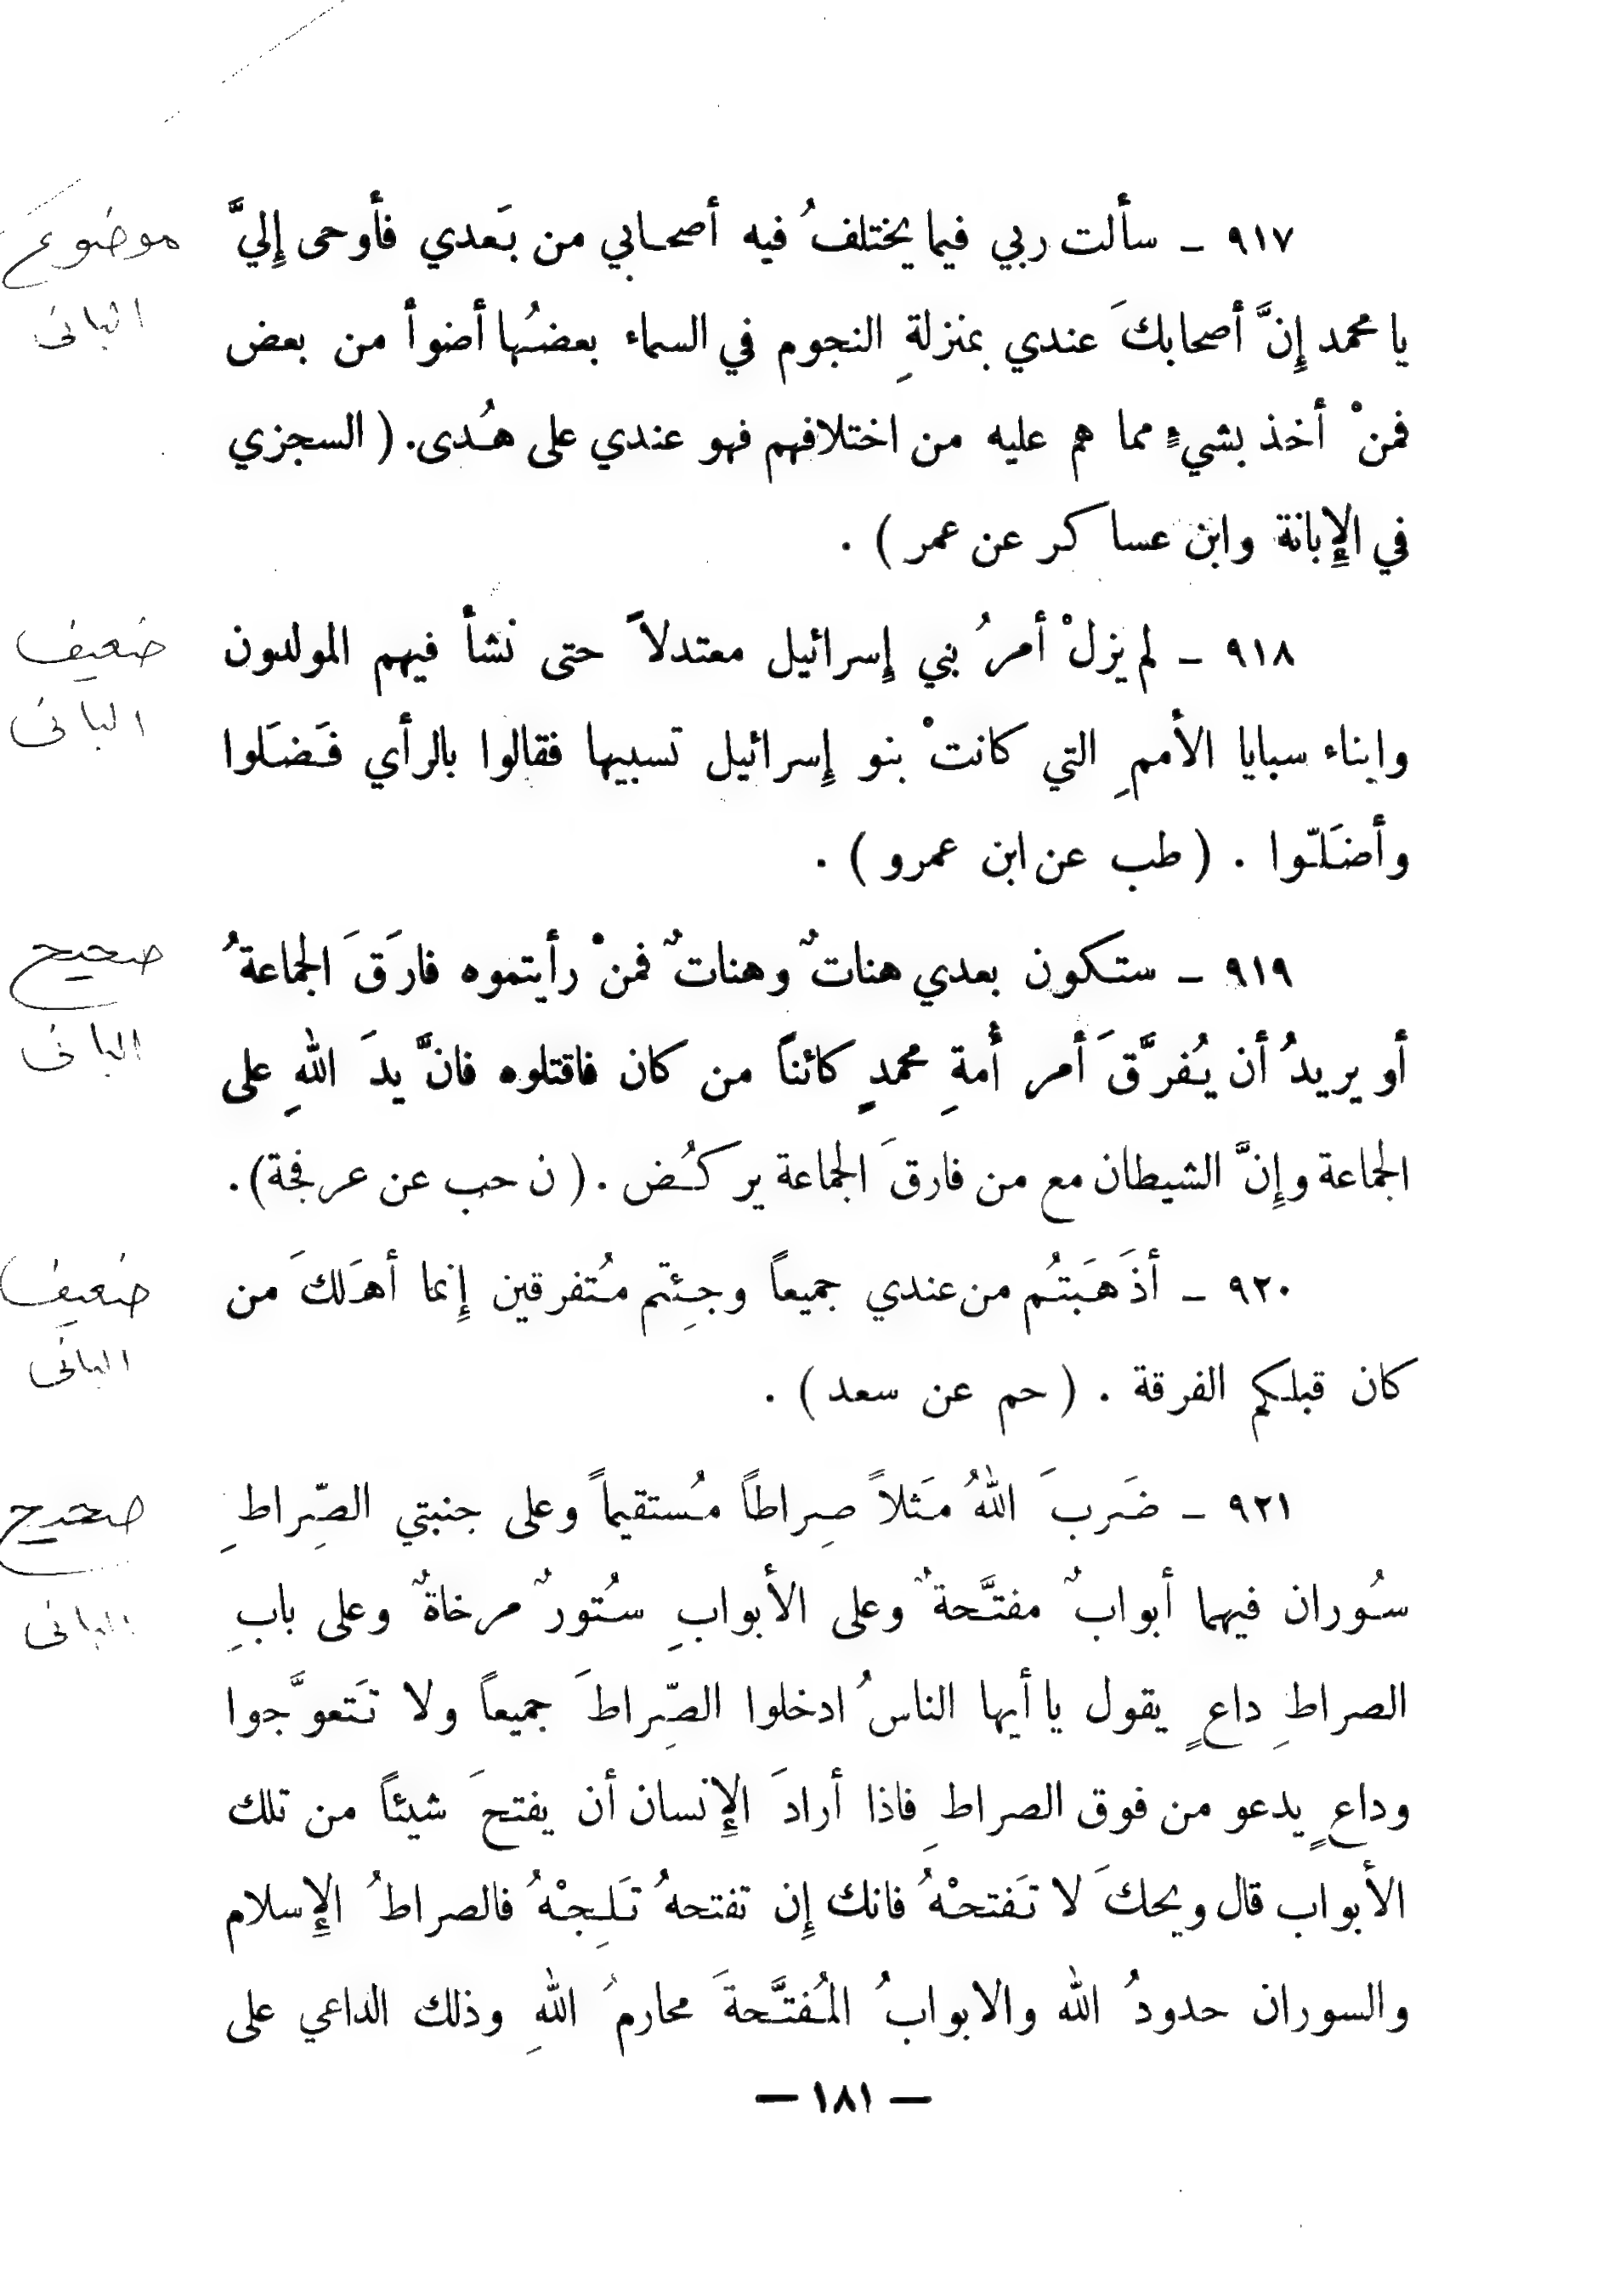 ٩١٧ ـ سألت ربي فيما يختلفُ فيه أصحابي من بَعدي فأوحى إِليَّ
موضوع
يا محمد إِنَّ أصحابكَ عندي بمنزلةِ النجوم في السماء بعضُها أضوأ من بعض
البانى
فمنْ أخذ بشيءٍ مما هم عليه من اختلافهم فهو عندي على هُدى. ( السجزي
في الإِبانة وابن عساكر عن عمر ) .
٩١٨ ـ لم يزلْ أمرُ بني إِسرائيل معتدلاً حتى نشأ فيهم المولدون
ضعيف
وابناء سبايا الأممِ التي كانتْ بنو إِسرائيل تسبيها فقالوا بالرأي فَضَلوا
البانى
وأضَلّوا . ( طب عن ابن عمرو ) .
٩١٩ ـ ستكون بعدي هناتٌ وهناتٌ فمنْ رأيتموه فارَقَ الجماعةُ
صحيح
أو يريدُ أن يُفرَّقَ أمر أُمةِ محمدٍ كائناً من كان فاقتلوه فانَّ يدَ اللهِ على
البانى
الجماعة وإِنَّ الشيطان مع من فارقَ الجماعة يركُض . ( ن حب عن عرفجة ) .
٩٢٠ ـ أذَهَبتُم من عندي جميعاً وجِئتم مُتفرقين إِنما أهلَكَ من
ضعيف
كان قبلكم الفرقة . ( حم عن سعد ) .
البانى
٩٢١ ـ ضَربَ اللهُ مَثلاً صِراطاً مُستقيماً وعلى جنبتي الصِّراطِ
صحيح
سُوران فيهما أبوابٌ مفتَّحةٌ وعلى الأبوابِ سُتورٌ مرخاةٌ وعلى بابِ
البانى
الصراطِ داعٍ يقول يا أيها الناسُ ادخلوا الصِّراطَ جميعاً ولا تَتعوَّجوا
وداعٍ يدعو من فوق الصراطِ فاذا أرادَ الإِنسان أن يفتحَ شيئاً من تلك
الأبواب قال ويحكَ لا تَفتحْهُ فانك إِن تفتحهُ تَلِجْهُ فالصراطُ الإِسلام
والسوران حدودُ الله والابوابُ المُفتَّحةَ محارمُ اللهِ وذلك الداعي على
— ١٨١ —